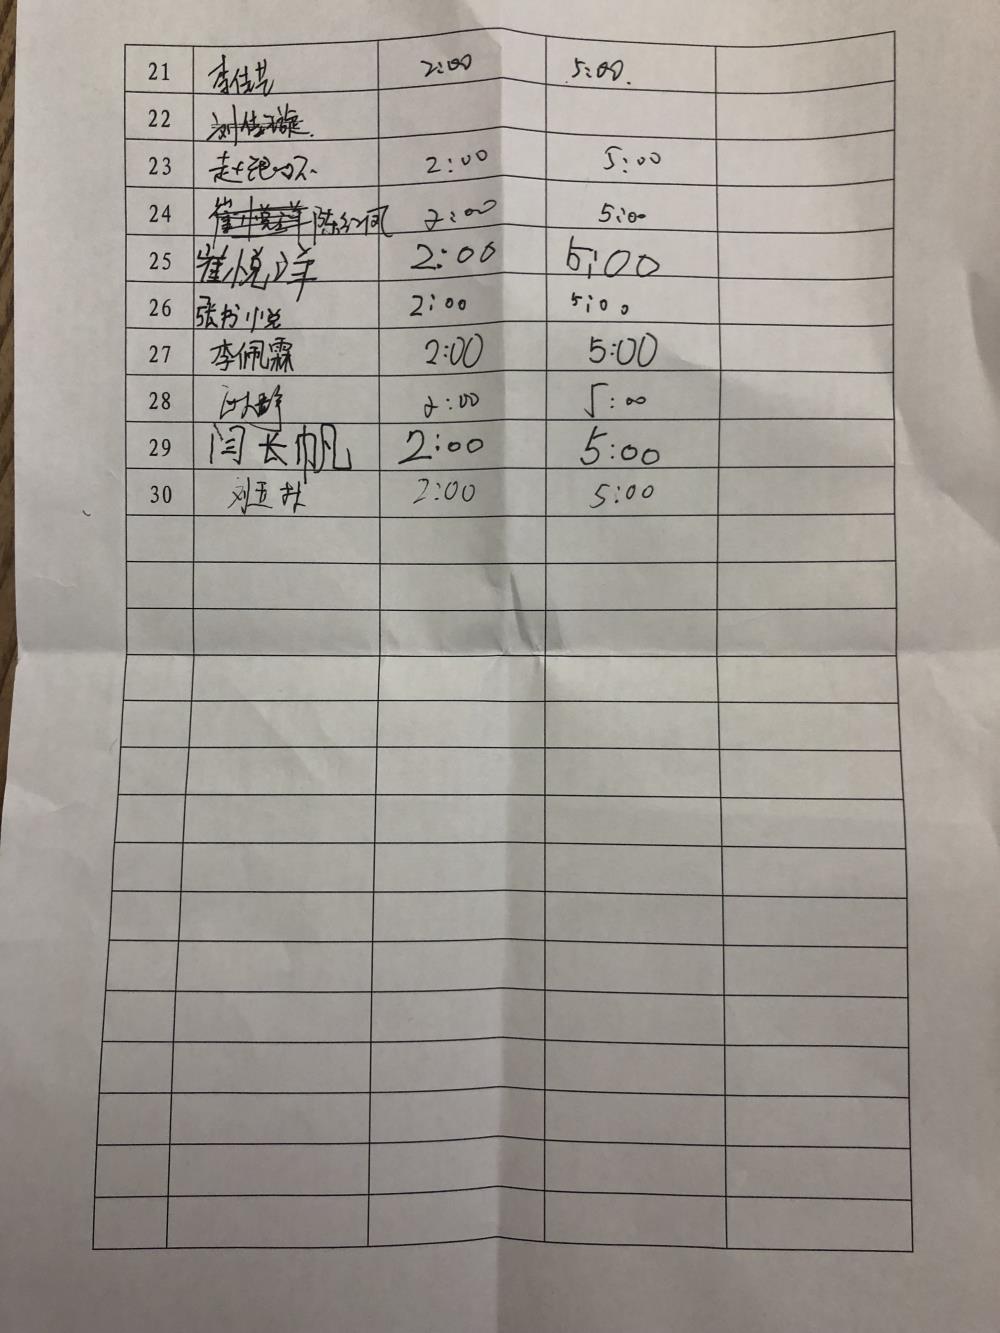 21 李佳芸 2:00 5:00.
22
23 2:00 5:00
24 陈红凤 2:00 5:00
25 崔悦洋 2:00 5:00
26 张书悦 2:00 5:00
27 李佩霖 2:00 5:00
28 2:00 5:00
29 闫长帆 2:00 5:00
30 2:00 5:00